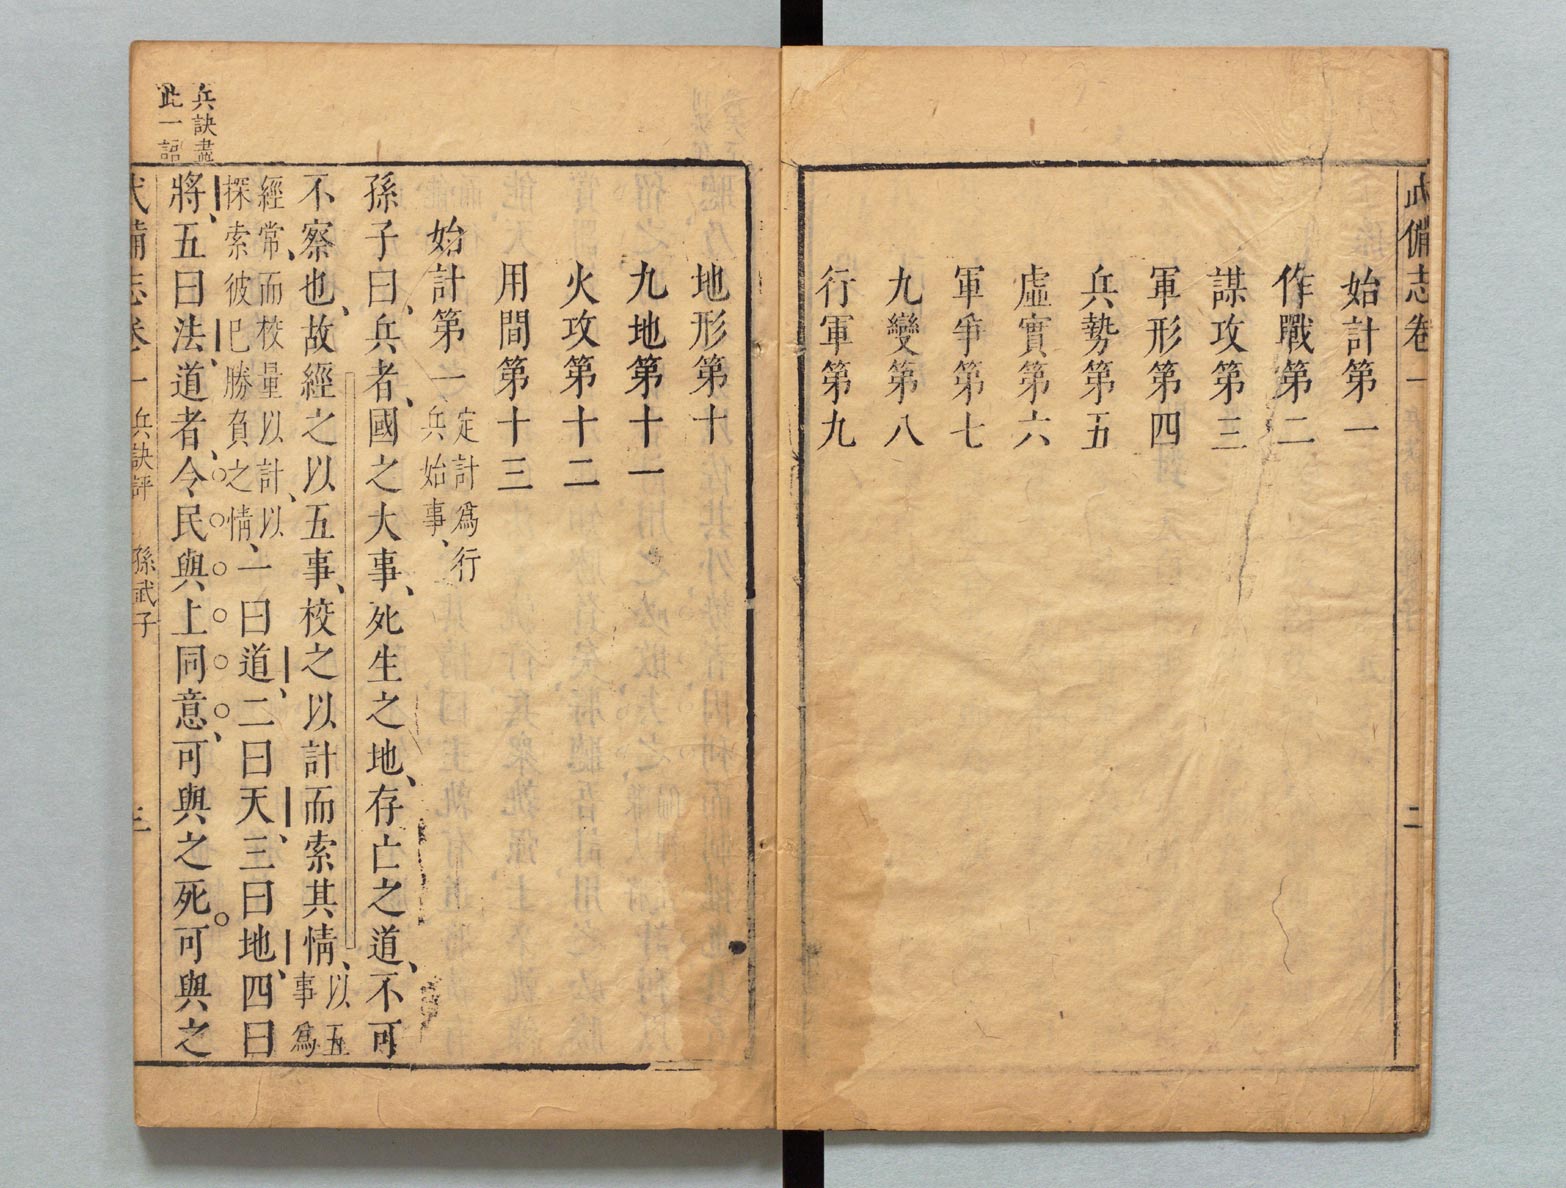 武備志卷一
二
始計第一
作戰第二
謀攻第三
軍形第四
兵勢第五
虛實第六
軍爭第七
九變第八
行軍第九
地形第十
九地第十一
火攻第十二
用間第十三
始計第一
定計爲行
兵始事、
孫子曰、兵者、國之大事、死生之地、存亡之道、不可
不察也、故經之以五事、校之以計而索其情、
以五
事爲
經常、而校量以計、以
探索彼已勝負之情、
一曰道、二曰天、三曰地、四曰
將、五曰法、道者、令民與上同意、可與之死。可與之
兵訣盡
此一語
武備志卷一 兵訣評 孫武子 三